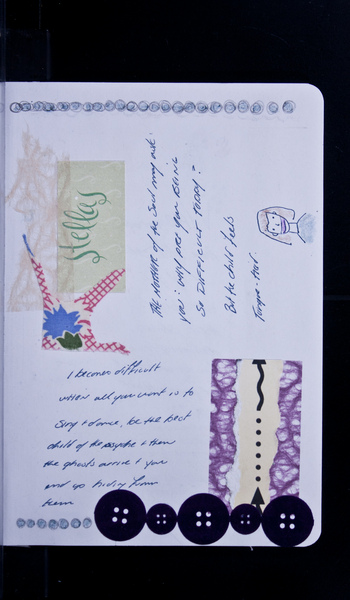 Hellas
The MOTHER of the Soul may ask
you: WHY ARE YOU BEING
SO DIFFICULT TODAY?
But the child feels
I becomes difficult
when all you want is to
Sing + dance, be the best
child of the psyche + then
the ghosts arrive + you
end up hiding from
them